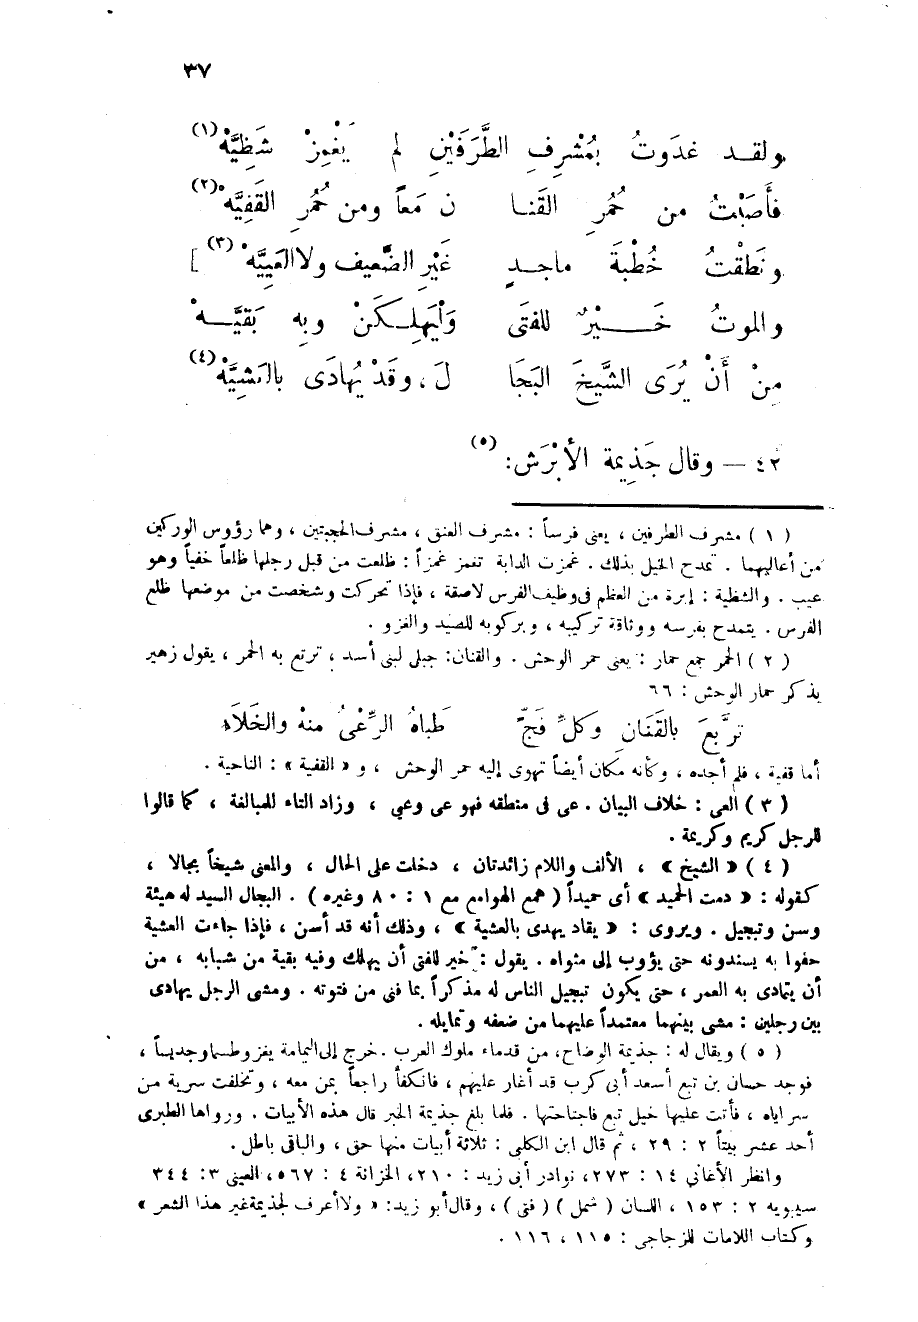 ٣٧
ولقد غدَوتُ بمُشْرِفِ الطَّرَفَيْنِ لم يَغْمِزْ شَظِيَّهْ (١)
فأَصَبْتُ من حُمُرِ القَنا نِ مَعاً ومن حُمُرِ القَفِيَّهْ (٢)
ونَطَقْتُ خُطْبَةَ ماجدٍ غَيْرِ الضَّعيف ولا العَيِيَّهْ (٣) ]
والموتُ خَيْرٌ للفتَى وَلْيَهْلِكَنْ وبه بَقيَّهْ
مِنْ أَنْ يُرَى الشَّيخَ البَجَا لَ ، وقَدْ يُهادَى بالعَشيَّهْ (٤)
٤٢ — وقال جَذِيمة الأَبْرَش : (٥)
( ١ ) مشرف الطرفين ، يعنى فرساً : مشرف العنق ، مشرف الحجبتين ، وهما رؤوس الوركين
من أعاليهما . تمدح الخيل بذلك . غمزت الدابة تغمز غمزاً : ظلعت من قبل رجلها ظلعاً خفياً وهو
عيب . والشظية : إبرة من العظم فى وظيف الفرس لاصقة ، فإذا تحركت وشخصت من موضعها ظلع
الفرس . يتمدح بفرسه ووثاقة تركيبه ، وبركوبه للصيد والغزو .
( ٢ ) الحمر جمع حمار : يعنى حمر الوحش . والقنان : جبلى لبنى أسد ، ترتع به الحمر ، يقول زهير
يذكر حمار الوحش : ٦٦
تربَّعَ بالقَنَانِ وكلِّ فَجٍّ طَباهُ الرِّعْىُ منهُ والخَلَاءُ
أما قفية ، فلم أجده ، وكأنه مكان أيضاً تهوى إليه حمر الوحش ، و « القفية » : الناحية .
( ٣ ) العى : خلاف البيان . عى فى منطقه فهو عى وعيي ، وزاد التاء للمبالغة ، كما قالوا
للرجل كريم وكريمة .
( ٤ ) « الشيخ » ، الألف واللام زائدتان ، دخلت على الحال ، والمعنى شيخاً بجالا ،
كقوله : « دمت الحميد » أى حميداً ( همع الهوامع مع ١ : ٨٠ وغيره ) . البجال السيد له هيئة
وسن وتبجيل . ويروى : « يقاد يهدى بالعشية » ، وذلك أنه قد أسن ، فإذا جاءت العشية
حفوا به يسندونه حتى يؤوب إلى مثواه . يقول : خير للفتى أن يهلك وفيه بقية من شبابه ، من
أن يتمادى به العمر ، حتى يكون تبجيل الناس له مذكراً بما فنى من فتوته . ومشى الرجل يهادى
بين رجلين : مشى بينهما معتمداً عليهما من ضعفه وتمايله .
( ٥ ) ويقال له : جذيمة الوضاح ، من قدماء ملوك العرب . خرج إلى اليمامة يغزو طسما وجديساً ،
فوجد حسان بن تبع أسعد أبى كرب قد أغار عليهم ، فانكفأ راجعاً بمن معه ، وتخلفت سرية من
سراياه ، فأتت عليها خيل تبع فاجتاحتها . فلما بلغ جذيمة الخبر قال هذه الأبيات . ورواها الطبرى
أحد عشر بيتاً ٢ : ٢٩ ، ثم قال ابن الكلبى : ثلاثة أبيات منها حق ، والباقى باطل .
وانظر الأغانى ١٤ : ٢٧٣ ، نوادر أبى زيد : ٢١٠ ، الخزانة ٤ : ٥٦٧ ، العينى ٣ : ٣٤٤
سيبويه ٢ : ١٥٣ ، اللسان ( شمل ) ( فتى ) ، وقال أبو زيد : « ولا أعرف لجذيمة غير هذا الشعر »
وكتاب اللامات للزجاجى : ١١٥ ، ١١٦ .